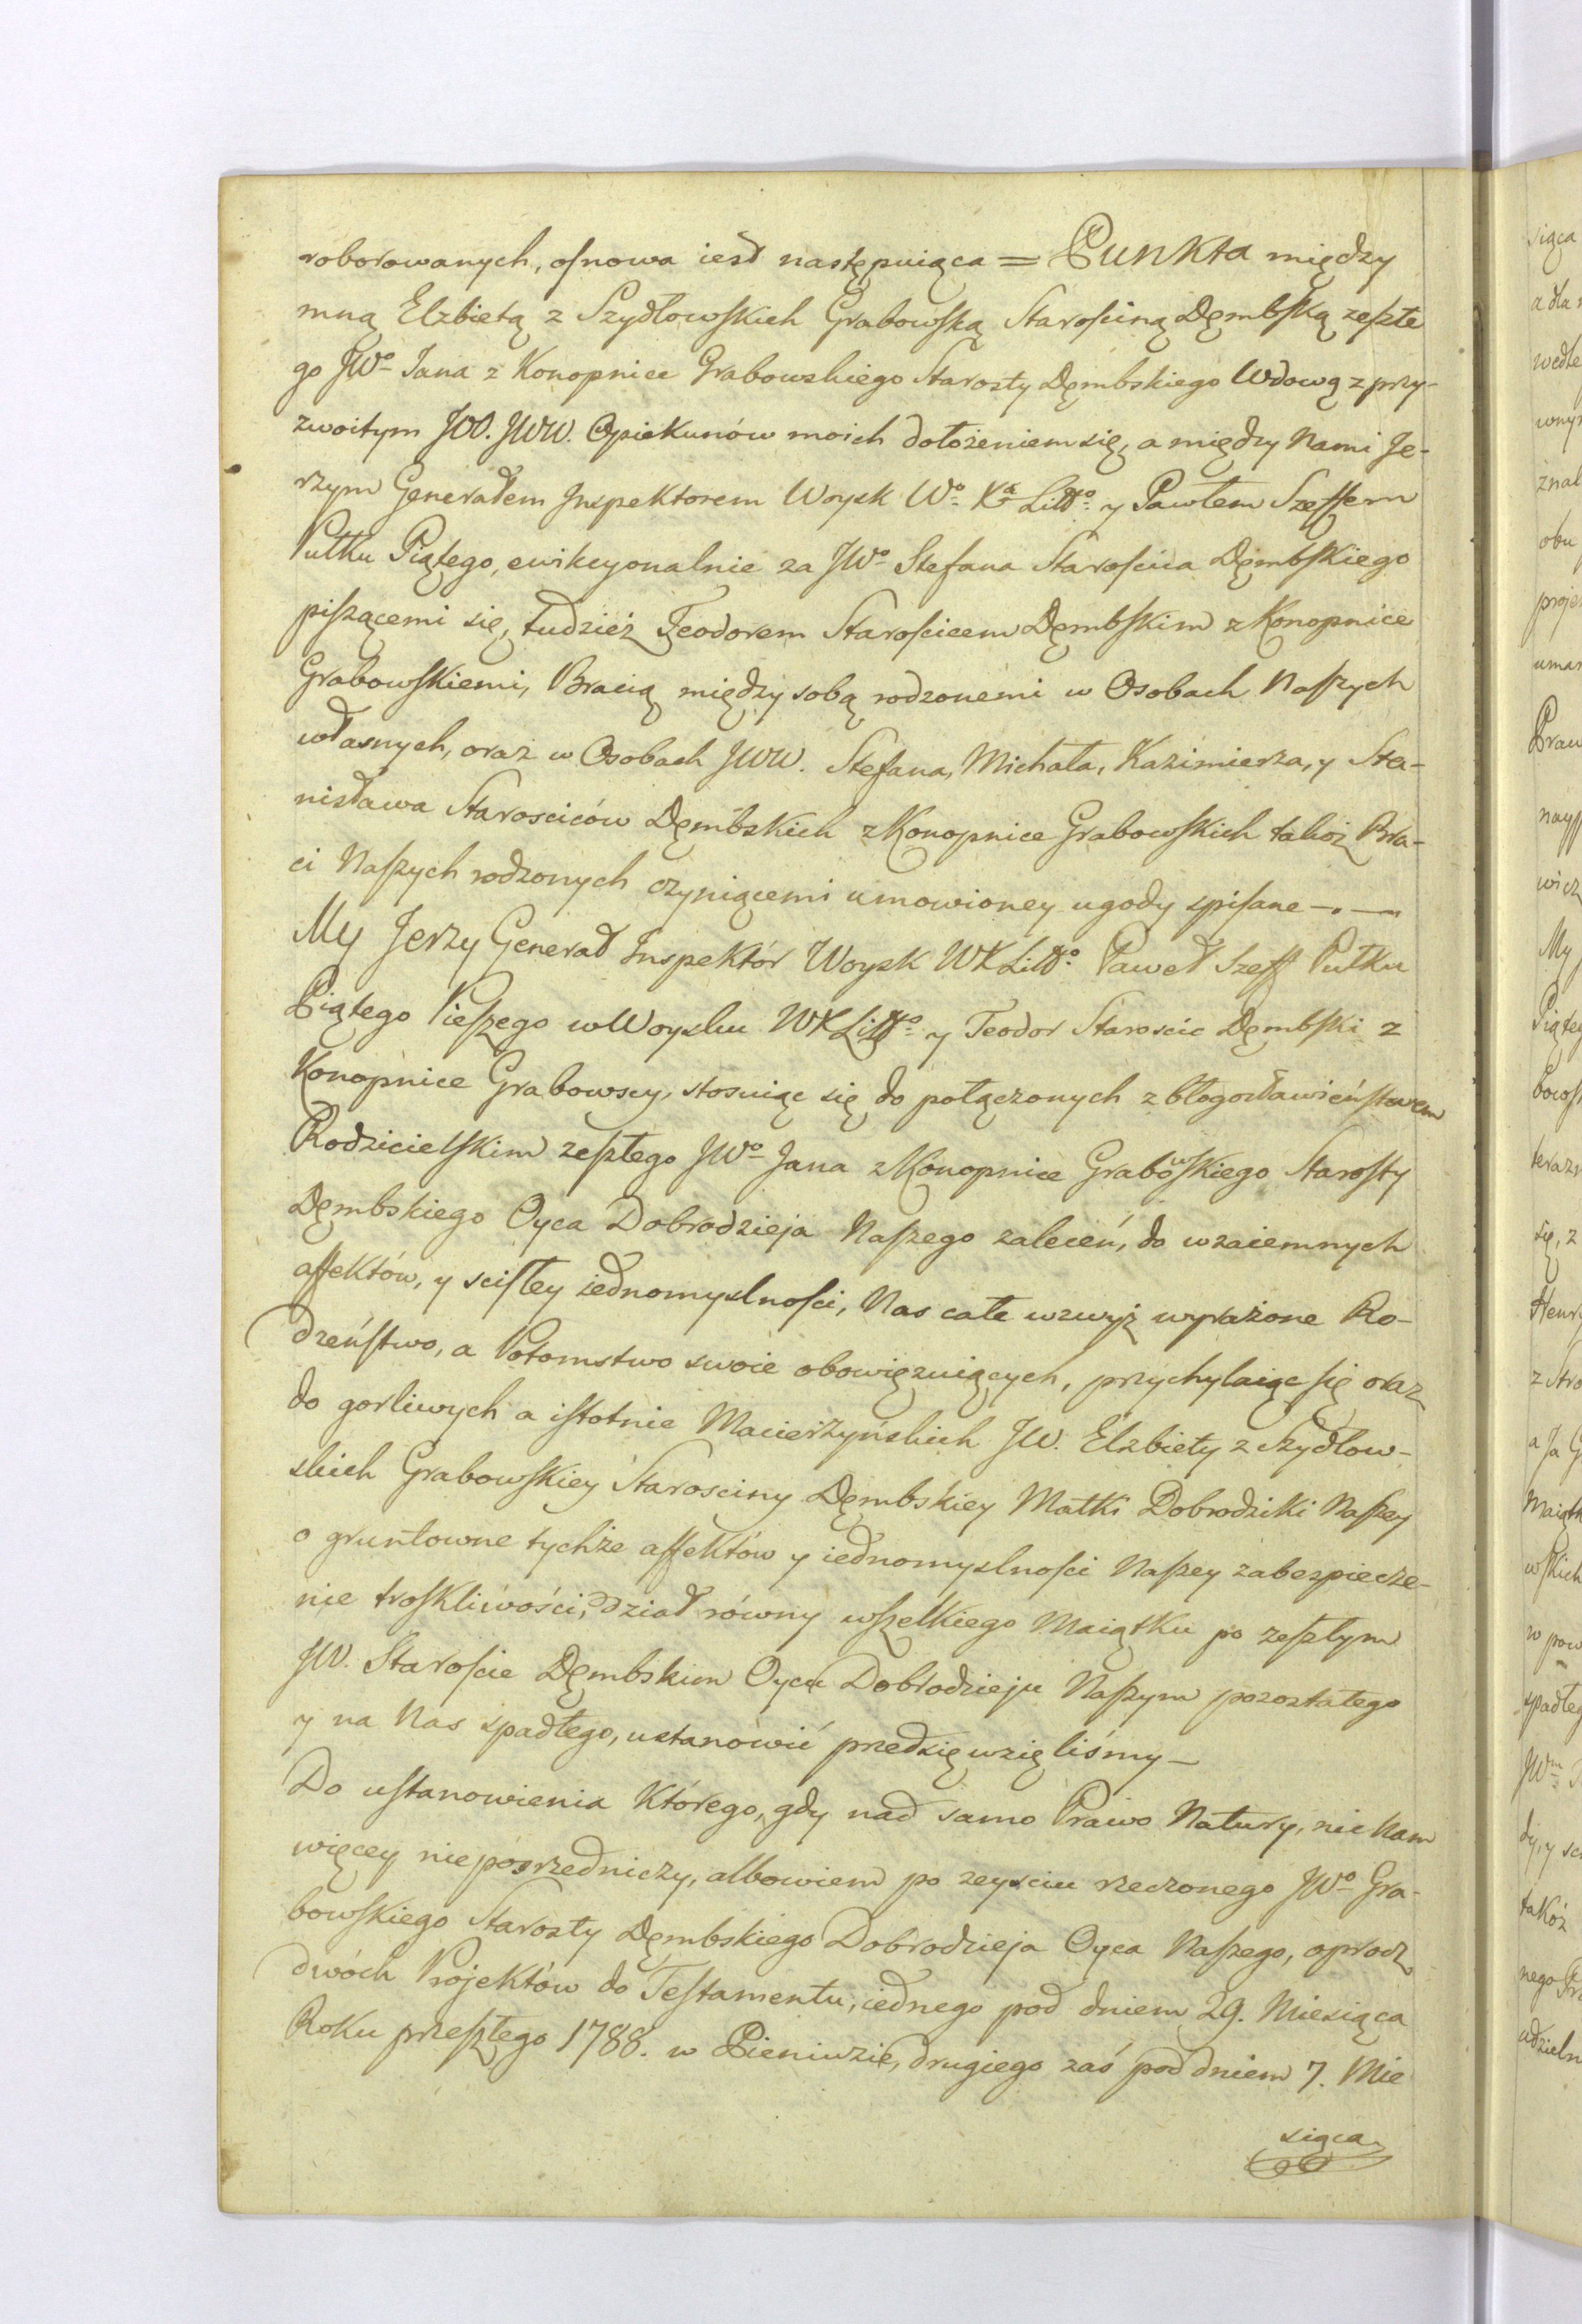 roborowanych, osnowa iest następuiąca = Punkta między
mną Elzbietą z Szydłowskich Grabowską Starościną Dęmbską zeszłe
go JWo Jana z Konopnice Grabowskiego Starosty Dęmbskiego Wdową z przy-
zwoitym JOO. JWW. Opiekunów moich dołożeniem się, a między Nami Je-
rzym Generałem Inspektorem Woysk Wo Xa Littо y Pawłem Szeffem
Pułku Piątego, ewikcyonalnie za JWo Stefana Starościca Dęmbskiego
piszącemi się, tudzież Teodorem Starościcem Dęmbskim z Konopnice
Grabowskiemi, Bracią między sobą rodzonemi w Osobach Naszych
własnych, oraz w Osobach JWW. Stefana, Michała, Kazimierza, y Sta-
nisława Starosciców Dęmbskich z Konopnice Grabowskich takoż Bra-
ci Naszych rodzonych czyniącemi umowioney ugody spisane —.—
My Jerzy Generał Inspektór Woysk WXLittо Paweł Szeff Pułku
Piątego Pieszego w Woysku WXLittо y Teodor Starościc Dęmbski z
Konopnice Grabowscy, stosuiąc się do połączonych z błogosławieństwem
Rodzicielskim zeszłego JWo Jana z Konopnice Grabowskiego Starosty
Dęmbskiego Oyca Dobrodzieja Naszego zaleceń, do wzaiemnych
affektów, y scisłey iednomyslności, Nas całe wzwyż wyrażone Ro-
dzeństwo, a Potomstwo swoie obowięzuiących, przychylaiąc się oraz
do gorliwych a istotnie Macierzyńskich JW. Elzbiety z Szydłow-
skich Grabowskiey Starosciny Dęmbskiey Matki Dobrodziki Naszey
o gruntowne tychże affektów y iednomyslności Naszey zabezpiecze-
nie troskliwości, dział równy wszelkiego Maiątku po zeszłym
JW. Staroście Dęmbskim Oycu Dobrodzieju Naszym pozostałego
y na Nas spadłego, ustanowić przedsięwzięliśmy —
Do ustanowienia którego, gdy nad samo Prawo Natury, nic nam
więcey nieposrzedniczy, albowiem po zeysciu rzeczonego JWo Gra-
bowskiego Starosty Dęmbskiego Dobrodzieja Oyca Naszego, oprócz
dwóch Projektów do Testamentu, iednego pod dniem 29. Miesiąca
Roku przeszłego 1788. w Pieniuzie, drugiego zaś pod dniem 7. Mie
siąca